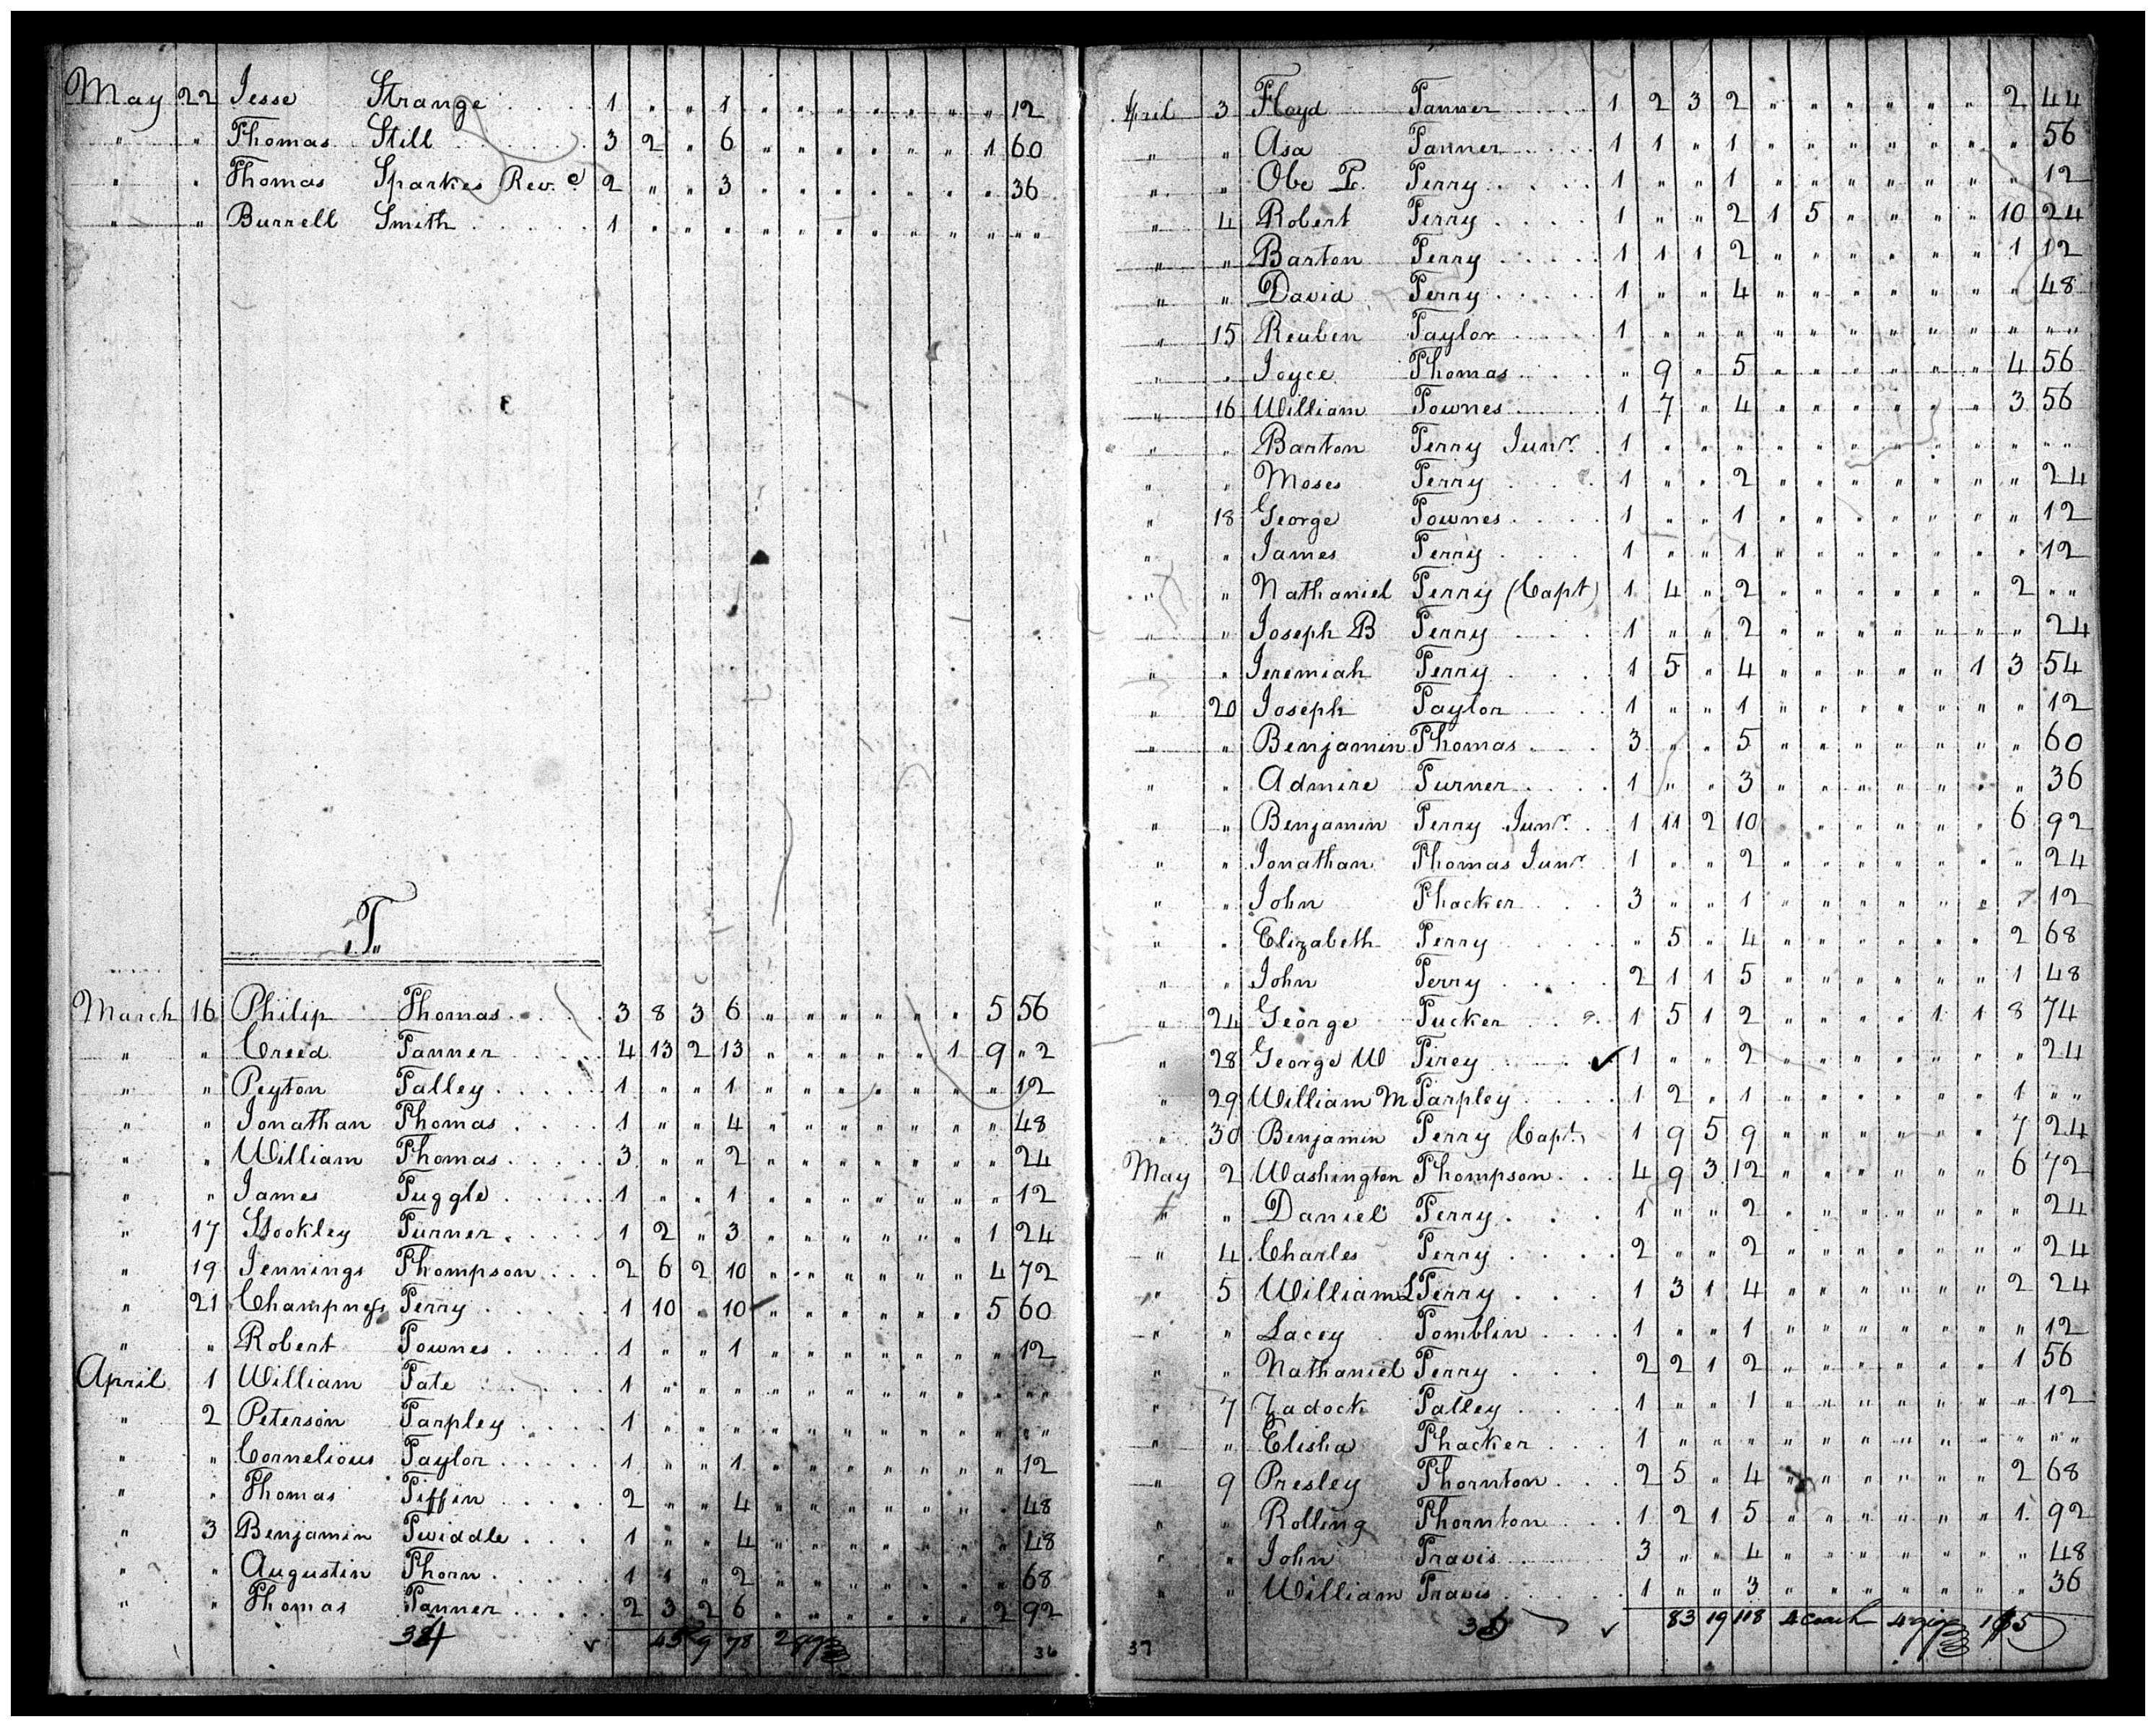 May 22 Jesse Strange 1 " " 1 " " " " " " " 12
" " Thomas Still 3 2 " 6 " " " " " " 1 60
" " Thomas Sparkes Rev.d 2 " " 3 " " " " " " " 36
" " Burrell Smith 1 " " " " " " " " " " " "
"T"
March 16 Philip Thomas 3 8 3 6 " " " " " " 5 56
" " Creed Tanner 4 13 2 13 " " " " " 1 9 " 2
" " Peyton Talley 1 " " 1 " " " " " " " 12
" " Jonathan Thomas 1 " " 4 " " " " " " " 48
" " William Thomas 3 " " 2 " " " " " " " 24
" " James Tuggle 1 " " 1 " " " " " " " 12
" 17 Stookley Turner 1 2 " 3 " " " " " " 1 24
" 19 Jennings Thompson 2 6 2 10 " " " " " " 4 72
" 21 Champness Terry 1 10 " 10 " " " " " " 5 60
" " Robert Townes 1 " " 1 " " " " " " " 12
April 1 William Tate 1 " " " " " " " " " " " "
" 2 Peterson Tarpley 1 " " " " " " " " " " " "
" " Cornelious Taylor 1 " " 1 " " " " " " " 12
" " Thomas Tiffin 2 " " 4 " " " " " " " 48
" 3 Benjamin Twiddle 1 " " 4 " " " " " " " 48
" " Augustin Thorn 1 1 " 2 " " " " " " " 68
" " Thomas Tanner 2 3 2 6 " " " " " " 2 92
45 9 78 2 gigs
36
April 3 Floyd Tanner 1 2 3 2 " " " " " " 2 44
" " Asa Tanner 1 1 " 1 " " " " " " " 56
" " Obe P. Terry 1 " " 1 " " " " " " " 12
" 4 Robert Terry 1 " " 2 1 5 " " " " 10 24
" " Barton Terry 1 1 1 2 " " " " " " 1 12
" " David Terry 1 " " 4 " " " " " " " 48
" 15 Reuben Taylor 1 " " " " " " " " " " " "
" " Joyce Thomas " 9 " 5 " " " " " " 4 56
" 16 William Townes 1 7 " 4 " " " " " " 3 56
" " Barton Terry Junr. 1 " " " " " " " " " " " "
" " Moses Terry 1 " " 2 " " " " " " " 24
" 18 George Townes 1 " " 1 " " " " " " " 12
" " James Terry 1 " " 1 " " " " " " " 12
" " Nathaniel Terry (Capt) 1 4 " 2 " " " " " " 2 " "
" " Joseph B Terry 1 " " 2 " " " " " " " 24
" " Jeremiah Terry 1 5 " 4 " " " " " 1 3 54
" 20 Joseph Taylor 1 " " 1 " " " " " " " 12
" " Benjamin Thomas 3 " " 5 " " " " " " " 60
" " Admire Turner 1 " " 3 " " " " " " " 36
" " Benjamin Terry Junr. 1 11 2 10 " " " " " 6 92
" " Jonathan Thomas Junr 1 " " 2 " " " " " " " 24
" " John Thacker 3 " " 1 " " " " " " " 12
" " Elizabeth Terry " 5 " 4 " " " " " " 2 68
" " John Terry 2 1 1 5 " " " " " " 1 48
" 24 George Tucker 1 5 1 2 " " " " 1 1 8 74
" 28 George W Tirey ✓ 1 " " 2 " " " " " " " 24
" 29 William M Tarpley 1 2 " 1 " " " " " " 1 " "
" 30 Benjamin Terry (Capt) 1 9 5 9 " " " " " " 7 24
May 2 Washington Thompson 4 9 3 12 " " " " " " 6 72
" " Daniel Terry 1 " " 2 " " " " " " " 24
" 4 Charles Terry 2 " " 2 " " " " " " " 24
" 5 William L Terry 1 3 1 4 " " " " " " 2 24
" " Lacey Tomblin 1 " " 1 " " " " " " " 12
" " Nathaniel Terry 2 2 1 2 " " " " " " 1 56
" 7 Zadock Talley 1 " " 1 " " " " " " " 12
" " Elisha Thacker 1 " " " " " " " " " " " "
" 9 Presley Thornton 2 5 " 4 " " " " " " 2 68
" " Rolling Thornton 1 2 1 5 " " " " " " 1 92
" " John Travis 3 " " 4 " " " " " " " 48
" " William Travis 1 " " 3 " " " " " " " 36
✓ 83 19 118 coach gigs
37